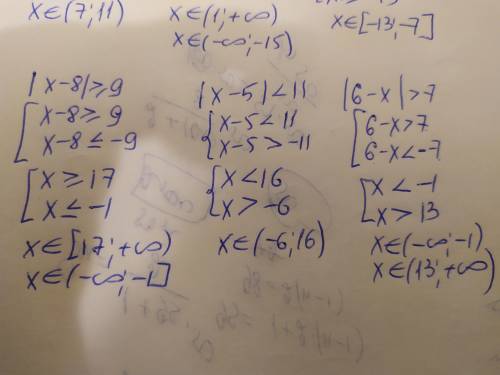 x∈(7;11)
x∈(1;+∞)
x∈(-∞;-15)
x∈[-13;-7]
|x-8|≥9
[x-8≥9
x-8≤-9
[x≥17
x≤-1
x∈[17;+∞)
x∈(-∞;-1]
|x-5|<11
{x-5<11
x-5>-11
{x<16
x>-6
x∈(-6;16)
|6-x|>7
[6-x>7
6-x<-7
[x<-1
x>13
x∈(-∞;-1)
x∈(13;+∞)